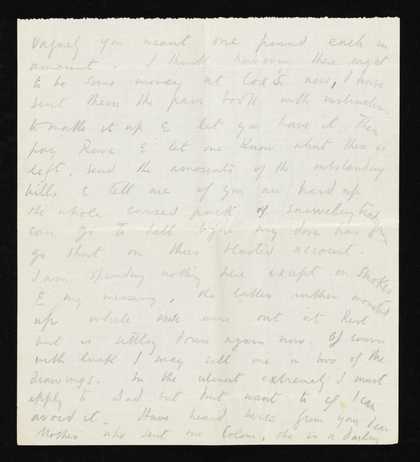 vaguely you meant one pound each in
amount. I think however there ought
to be some money at Cox's now, I have
sent them the pass book with instructions
to make it up & let you have it. Then
pay Rowe & let me know what there is
left, send the amounts of the outstanding
bills & tell me if you are hard up
the whole cursed pack of
can go to hell before my dove has to
go short on their blasted account.
I am spending nothing here except on smokes
& my messing, the latter rather mounted
up while we were out at Rest
but is settling down again now. Of course
with luck I may sell one or two of the
drawings. In the utmost extremity I must
apply to Dad but don't want to if I can
avoid it. Have heard twice from you &
Mother who sent me Colour, she is a darling